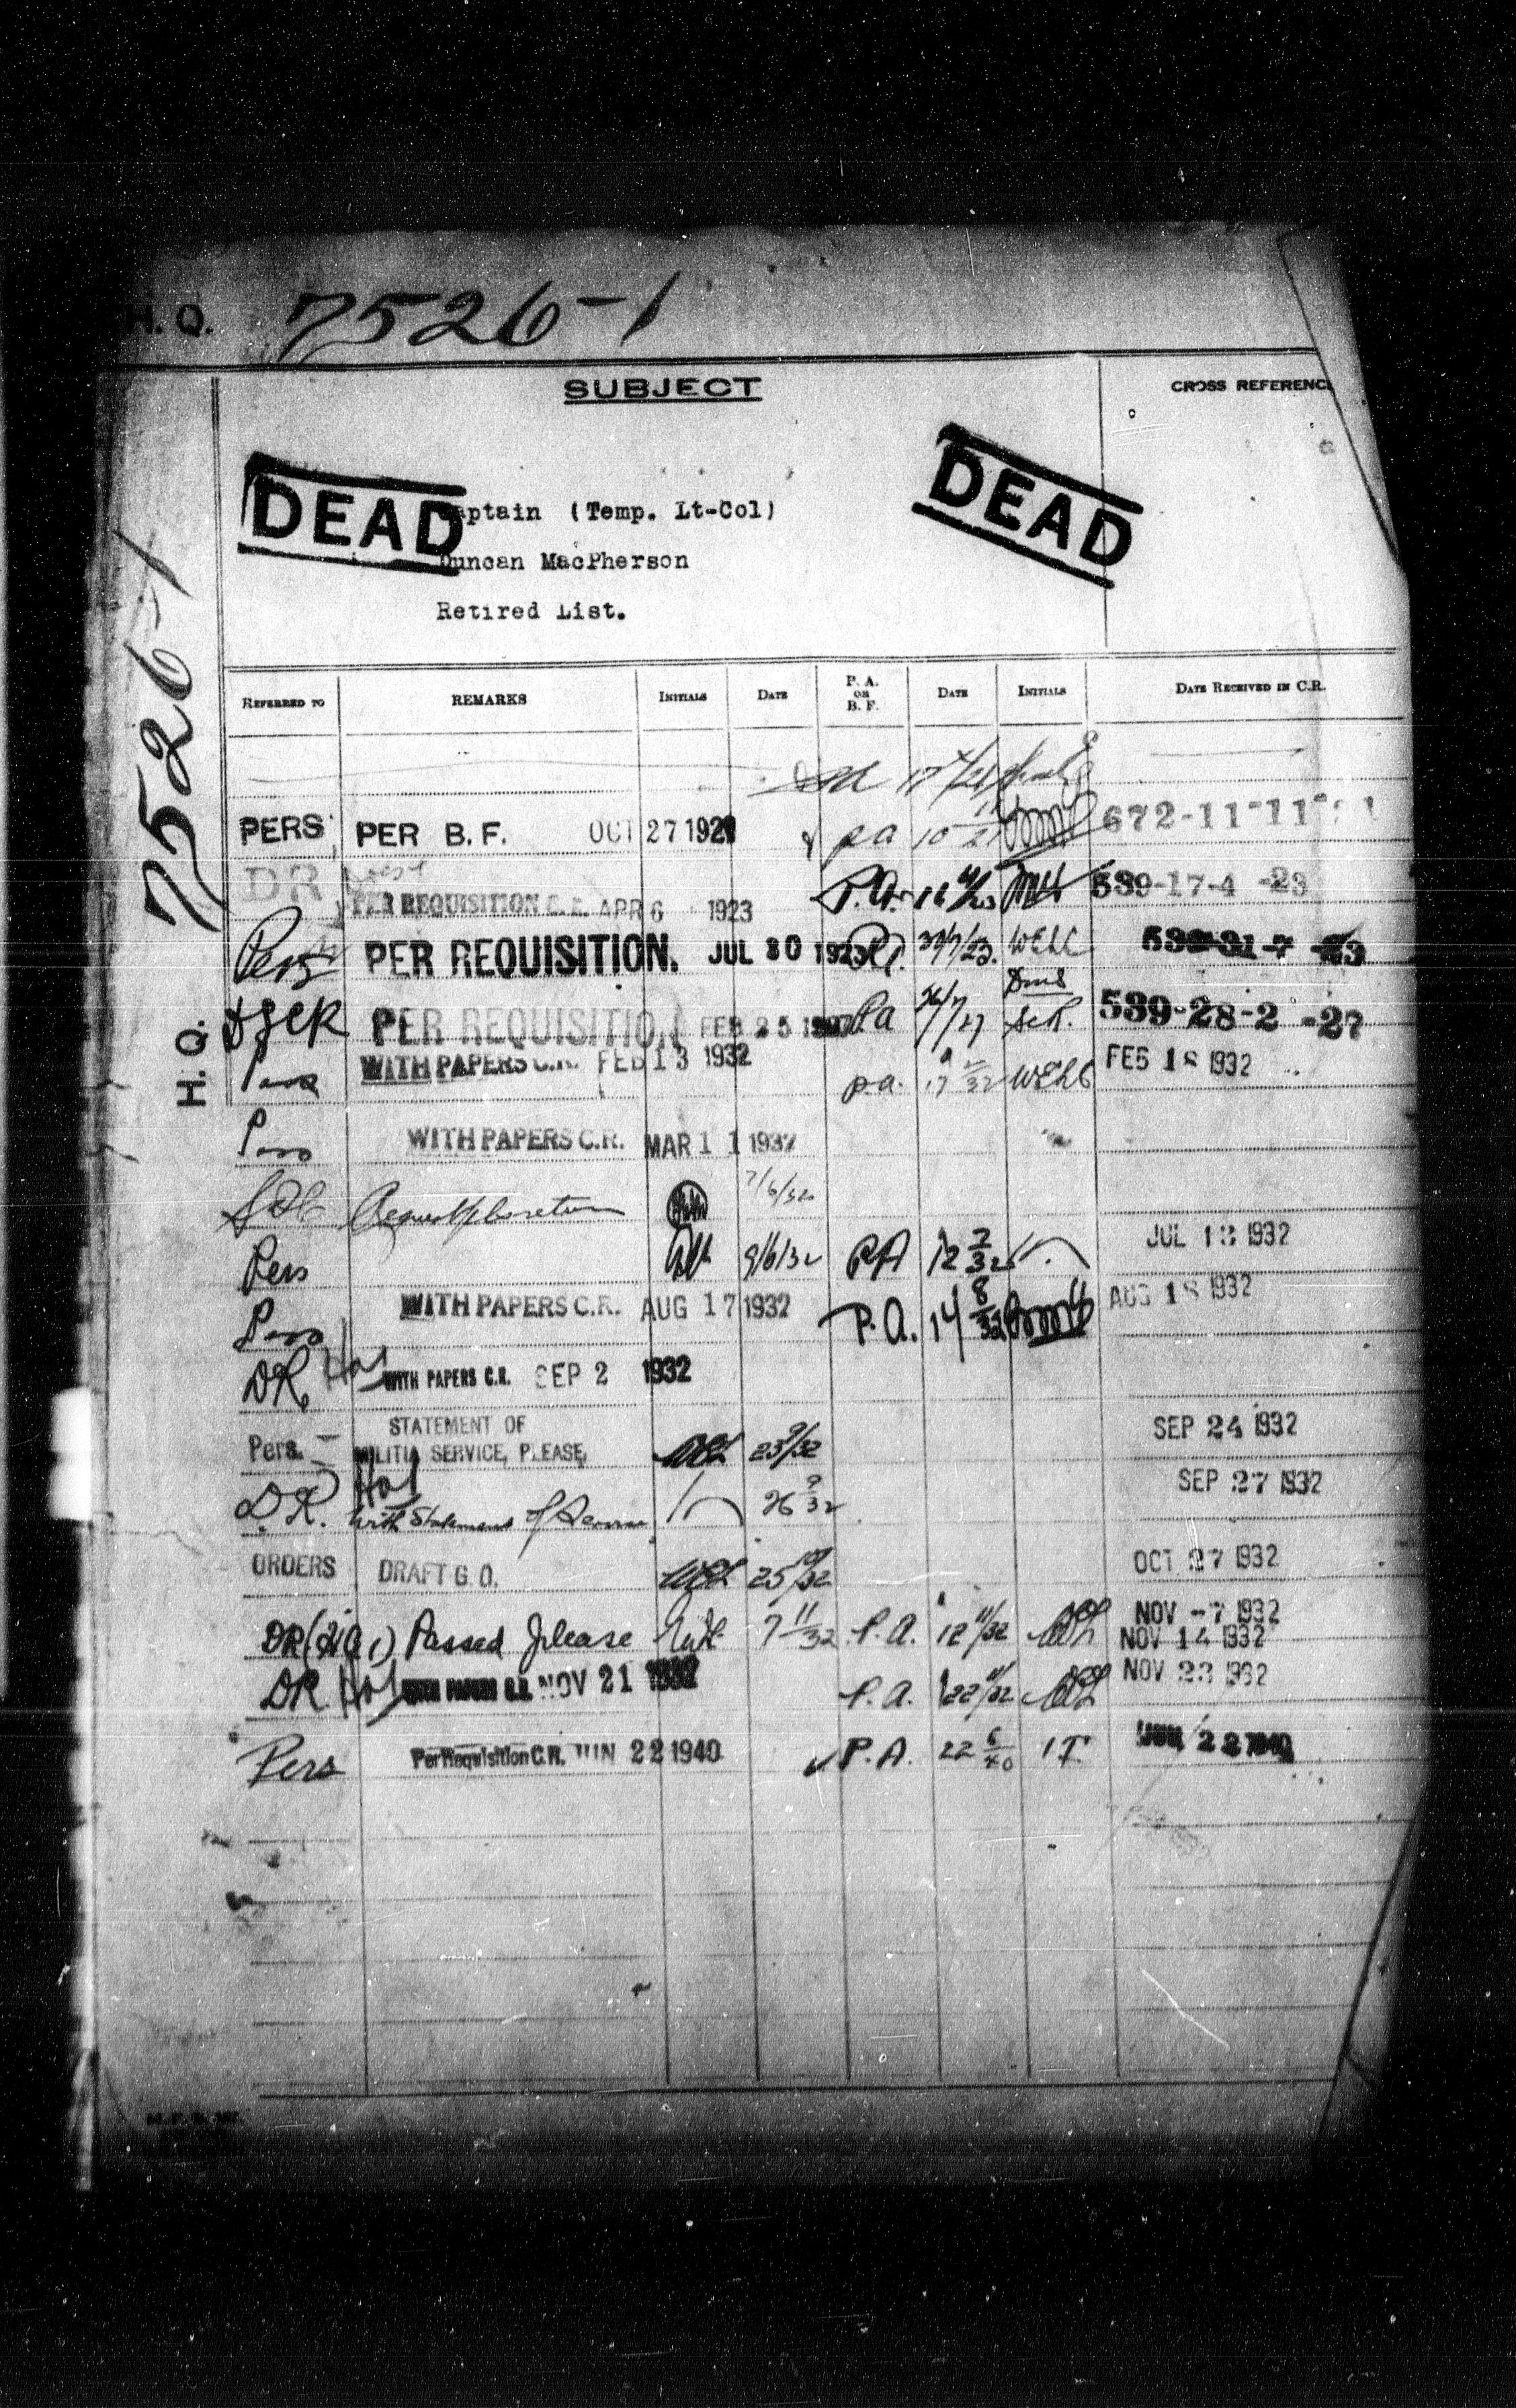 H. Q. 7526-1
SUBJECT
CROSS REFERENC
DEAD
DEAD
aptain (Temp. Lt-Col)
Duncan MacPherson
Retired List.
7526-1
H. Q.
REFERRED TO REMARKS INITIALS DATE P. A. OR B. F. DATE INITIALS DATE RECEIVED IN C.R.
PERS PER B. F. OCT 27 1921 pa 10 672-11-11
DR PER REQUISITION APR 6 1923 P.A. 16 4/23 539-17-4 -23
Pers PER REQUISITION. JUL 30 1923 30/7/23. WEHC 539-31-7 -23
PER REQUISITION FEB 25 1927 Pa 539-28-2 -27
Pers WITH PAPERS C.R. FEB 13 1932 p.a. 17 2/32 FEB 18 1932
Pers WITH PAPERS C.R. MAR 11 1932
7/6/32
Pers 9/6/32 P.A 12 7/32 JUL 13 1932
Pers WITH PAPERS C.R. AUG 17 1932 P.A. 14 8/32 AUG 18 1932
DR WITH PAPERS C.R. SEP 2 1932
Pers. STATEMENT OF
MILITIA SERVICE, PLEASE, 23 9/32 SEP 24 1932
D.R. With Statement of Service 26 9/32 SEP 27 1932
ORDERS DRAFT G.O. 25 10/32 OCT 27 1932
Passed please 7 11/32 P.A. 12 11/32 NOV -7 1932
NOV 14 1932
DR WITH PAPERS C.R. NOV 21 1932 P.A. 22 11/32 NOV 23 1932
Pers Per Requisition C.R. JUN 22 1940 P.A. 22 6/40 JUN 22 1940